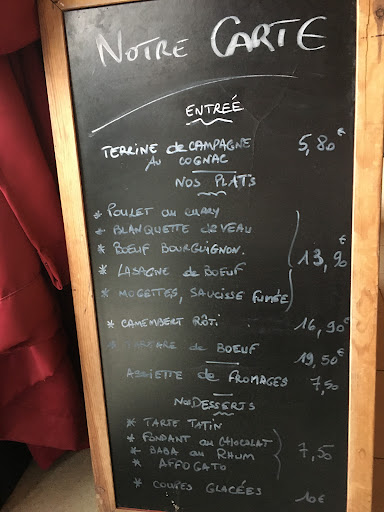 NOTRE CARTE
ENTREÉ
TERRINE de CAMPAGNE 5,80€
AU COGNAC
NOS PLATS
* POULET au CURRY
* BLANQUETTE de VEAU
* BOEUF BOURGUIGNON.
* LASAGNE de BOEUF 13,90€
* MOGETTES, SAUCISSE FUMÉE
* CAMEMBERT RÔTI 16,90€
* TARTARE de BOEUF 19,50€
ASSIETTE de FROMAGES 7,50
NOS DESSERTS
* TARTE TATIN
* FONDANT au CHOCOLAT
* BABA au RHUM 7,50
* AFFOGATO
* COUPES GLACÉES 10€